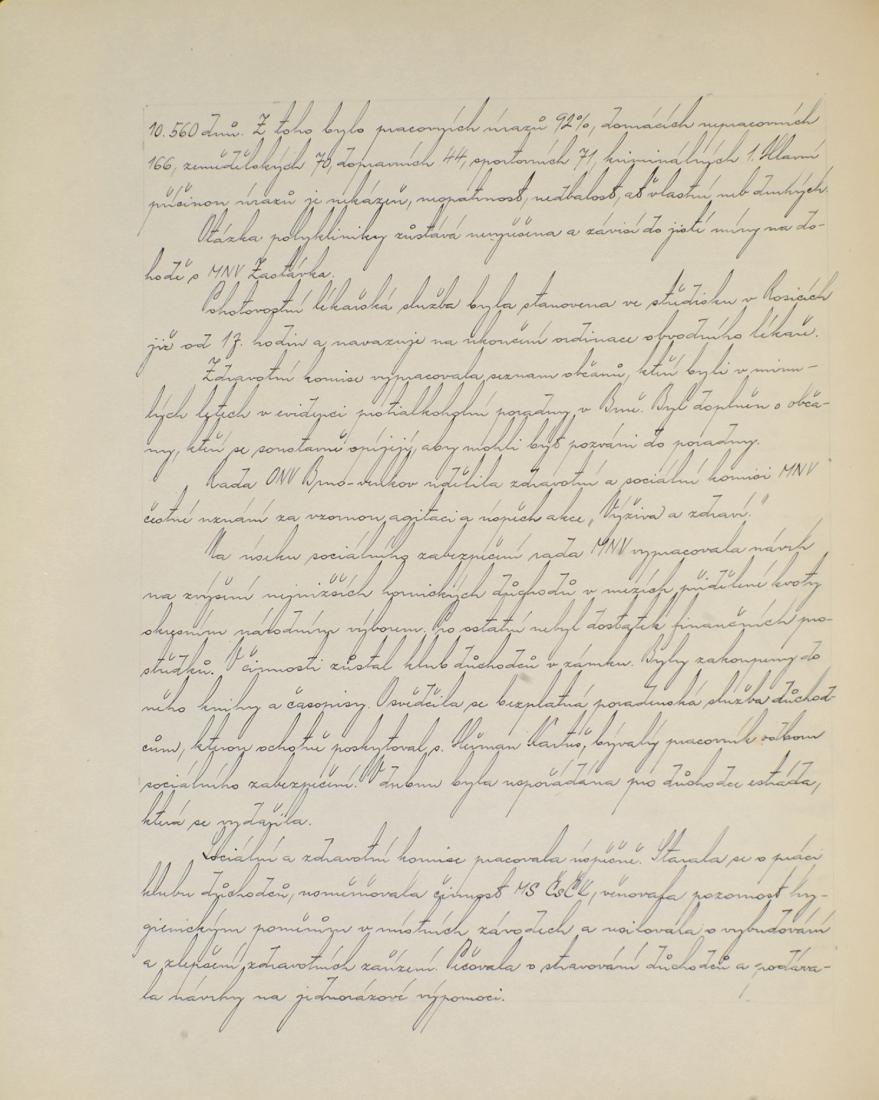 10.560 dnů. Z toho bylo pracovních úrazů 92%, domácích nepracovních
166, zemědělských 70, dopravních 44, sportovních 71, kriminálných 1. Hlavní
příčinou úrazů je nekázeň, neopatrnost, nedbalost, ať vlastní neb druhých.
Otázka polykliniky zůstává nevyřešena a závisí do jisté míry na do-
hodě s MNV Zastávka.
Pohotovostní lékařská služba byla stanovena ve středisku v Rosicích
již od 17. hodin a navazuje na ukončení ordinace obvodního lékaře.
Zdravotní komise vypracovala seznam občanů, kteří byli v minu-
lých letech v evidenci protialkoholní poradny v Brně. Byl doplněn o obča-
ny, kteří se soustavně opíjejí, aby mohli být pozváni do poradny.
Rada ONV Brno-venkov udělila zdravotní a sociální komisi MNV
čestné uznání za vzornou agitaci a úspěch akce „Výživa a zdraví."
Na úseku sociálního zabezpečení rada MNV vypracovala návrh
na zvýšení nejnižších hornických důchodů v mezích přidělené kvoty
okresním národním výborem. Pro ostatní nebyl dostatek finančních pro-
středků. V činnosti zůstal klub důchodců v zámku. Byly zakoupeny do
něho knihy a časopisy. Osvědčila se bezplatná poradenská služba důchod-
cům, kterou ochotně poskytoval s. Heřman, bývalý pracovník odboru
sociálního zabezpečení. V dubnu byla uspořádána pro důchodce estráda,
která se vydařila.
Sociální a zdravotní komise pracovala úspěšně. Starala se o práci
klubu důchodců, usměrňovala činnost MS ČsČK, věnovala pozornost hy-
gienickým poměrům v místních závodech a usilovala o vybudování
a zlepšení zdravotních zařízení. Pečovala o stravování důchodců a podáva-
la návrhy na jednorázové výpomoci.